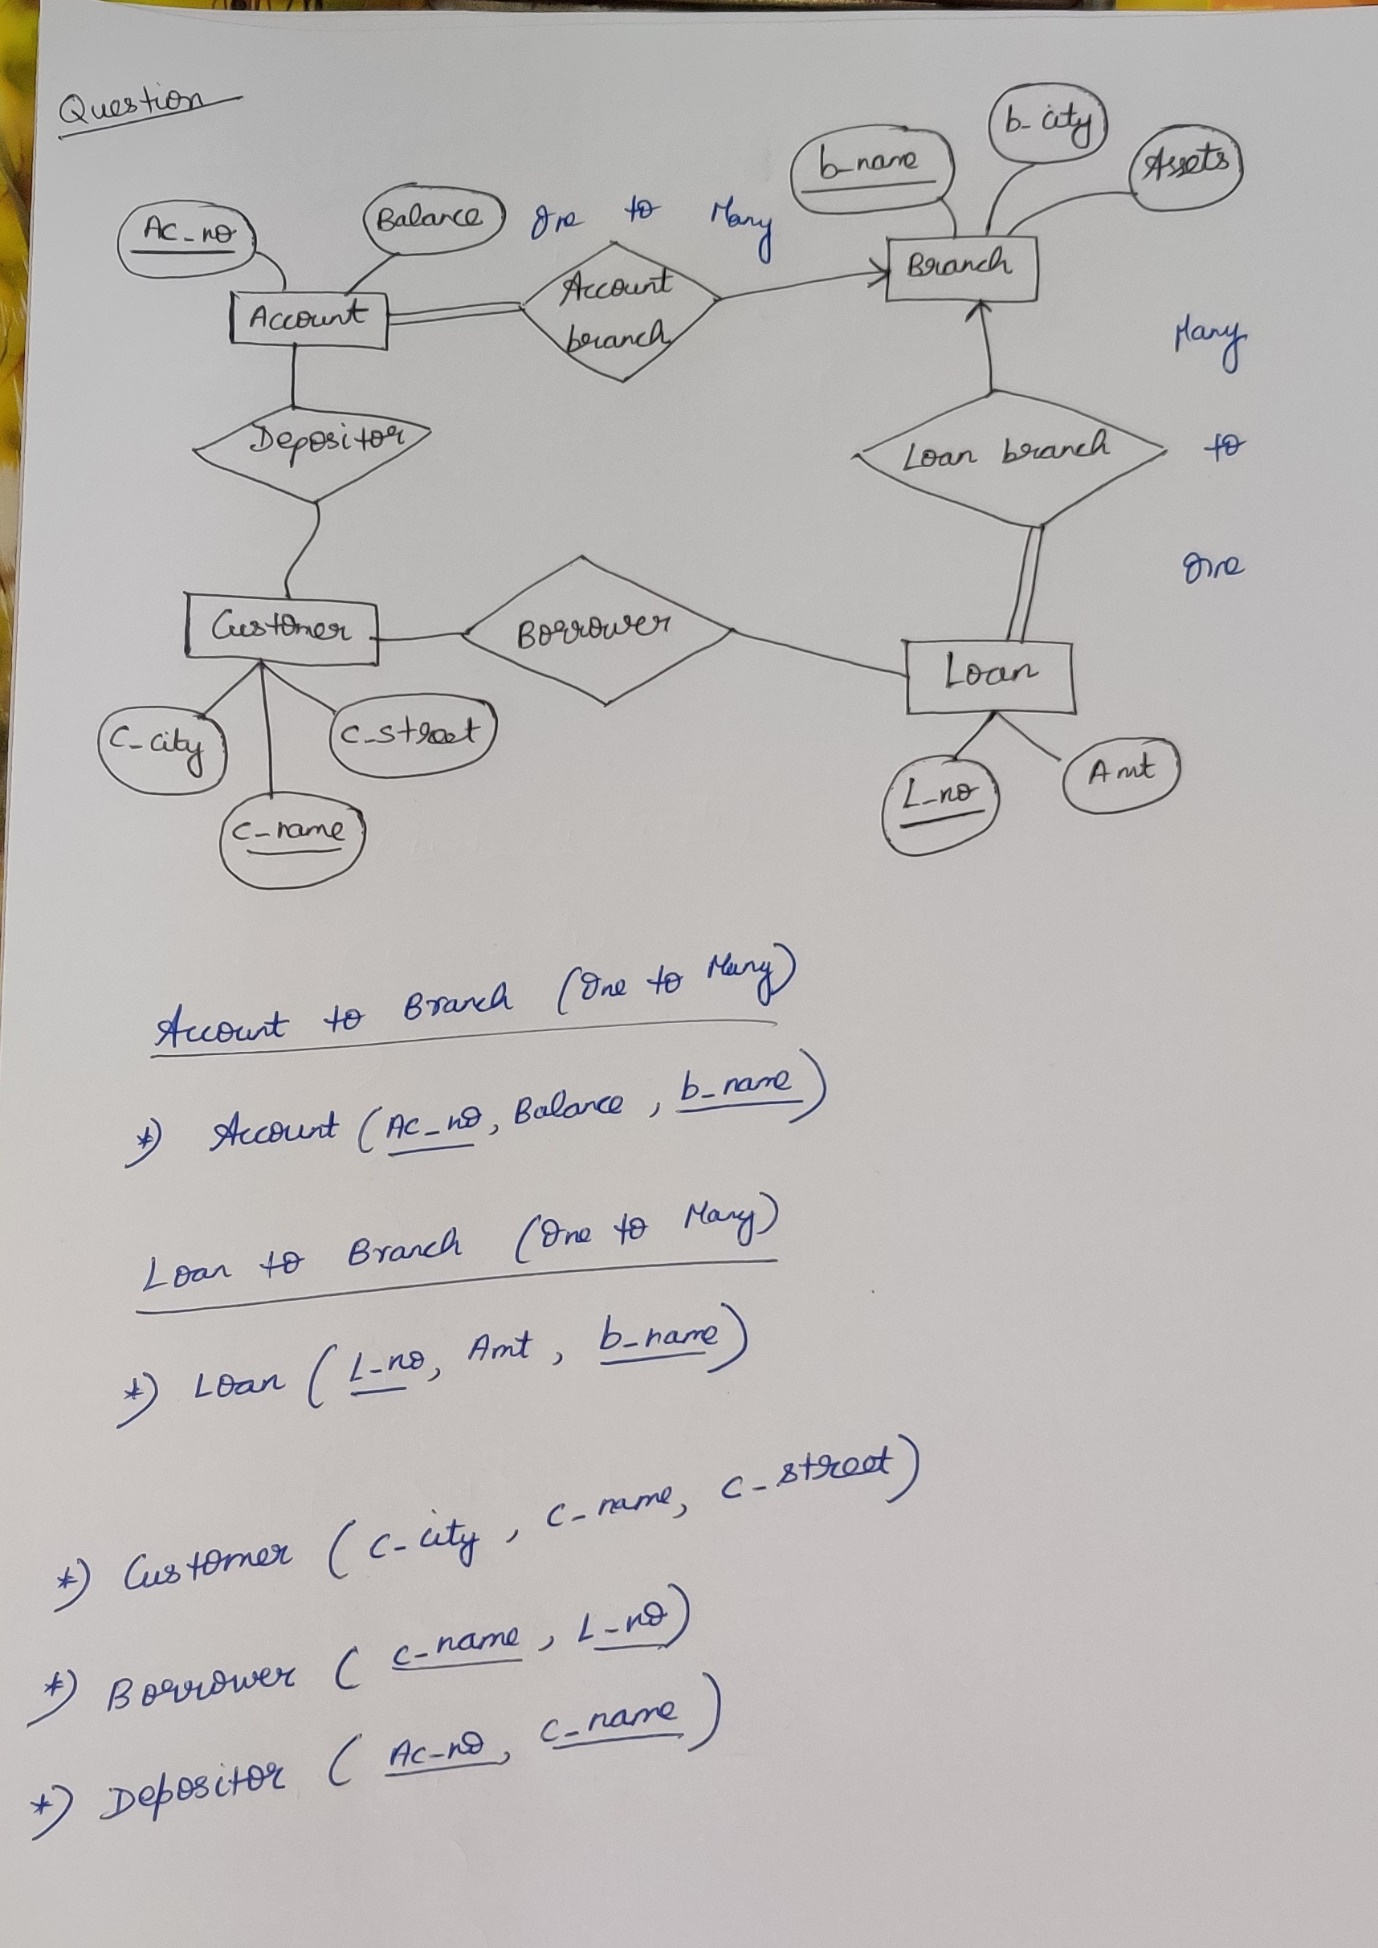 Question
b-city
b-name
Assets
Ac-no
Balance
One to Many
Branch
Account
branch
Account
Many
to
One
Depositor
Loan branch
Customer
Borrower
Loan
C-city
C-street
C-name
L-no
Amt
Account to Branch (One to Many)
*) Account (AC-no, Balance, b-name)
Loan to Branch (One to Many)
*) Loan (L-no, Amt, b-name)
*) Customer (C-city, C-name, C-street)
*) Borrower (C-name, L-no)
*) Depositor (AC-no, C-name)